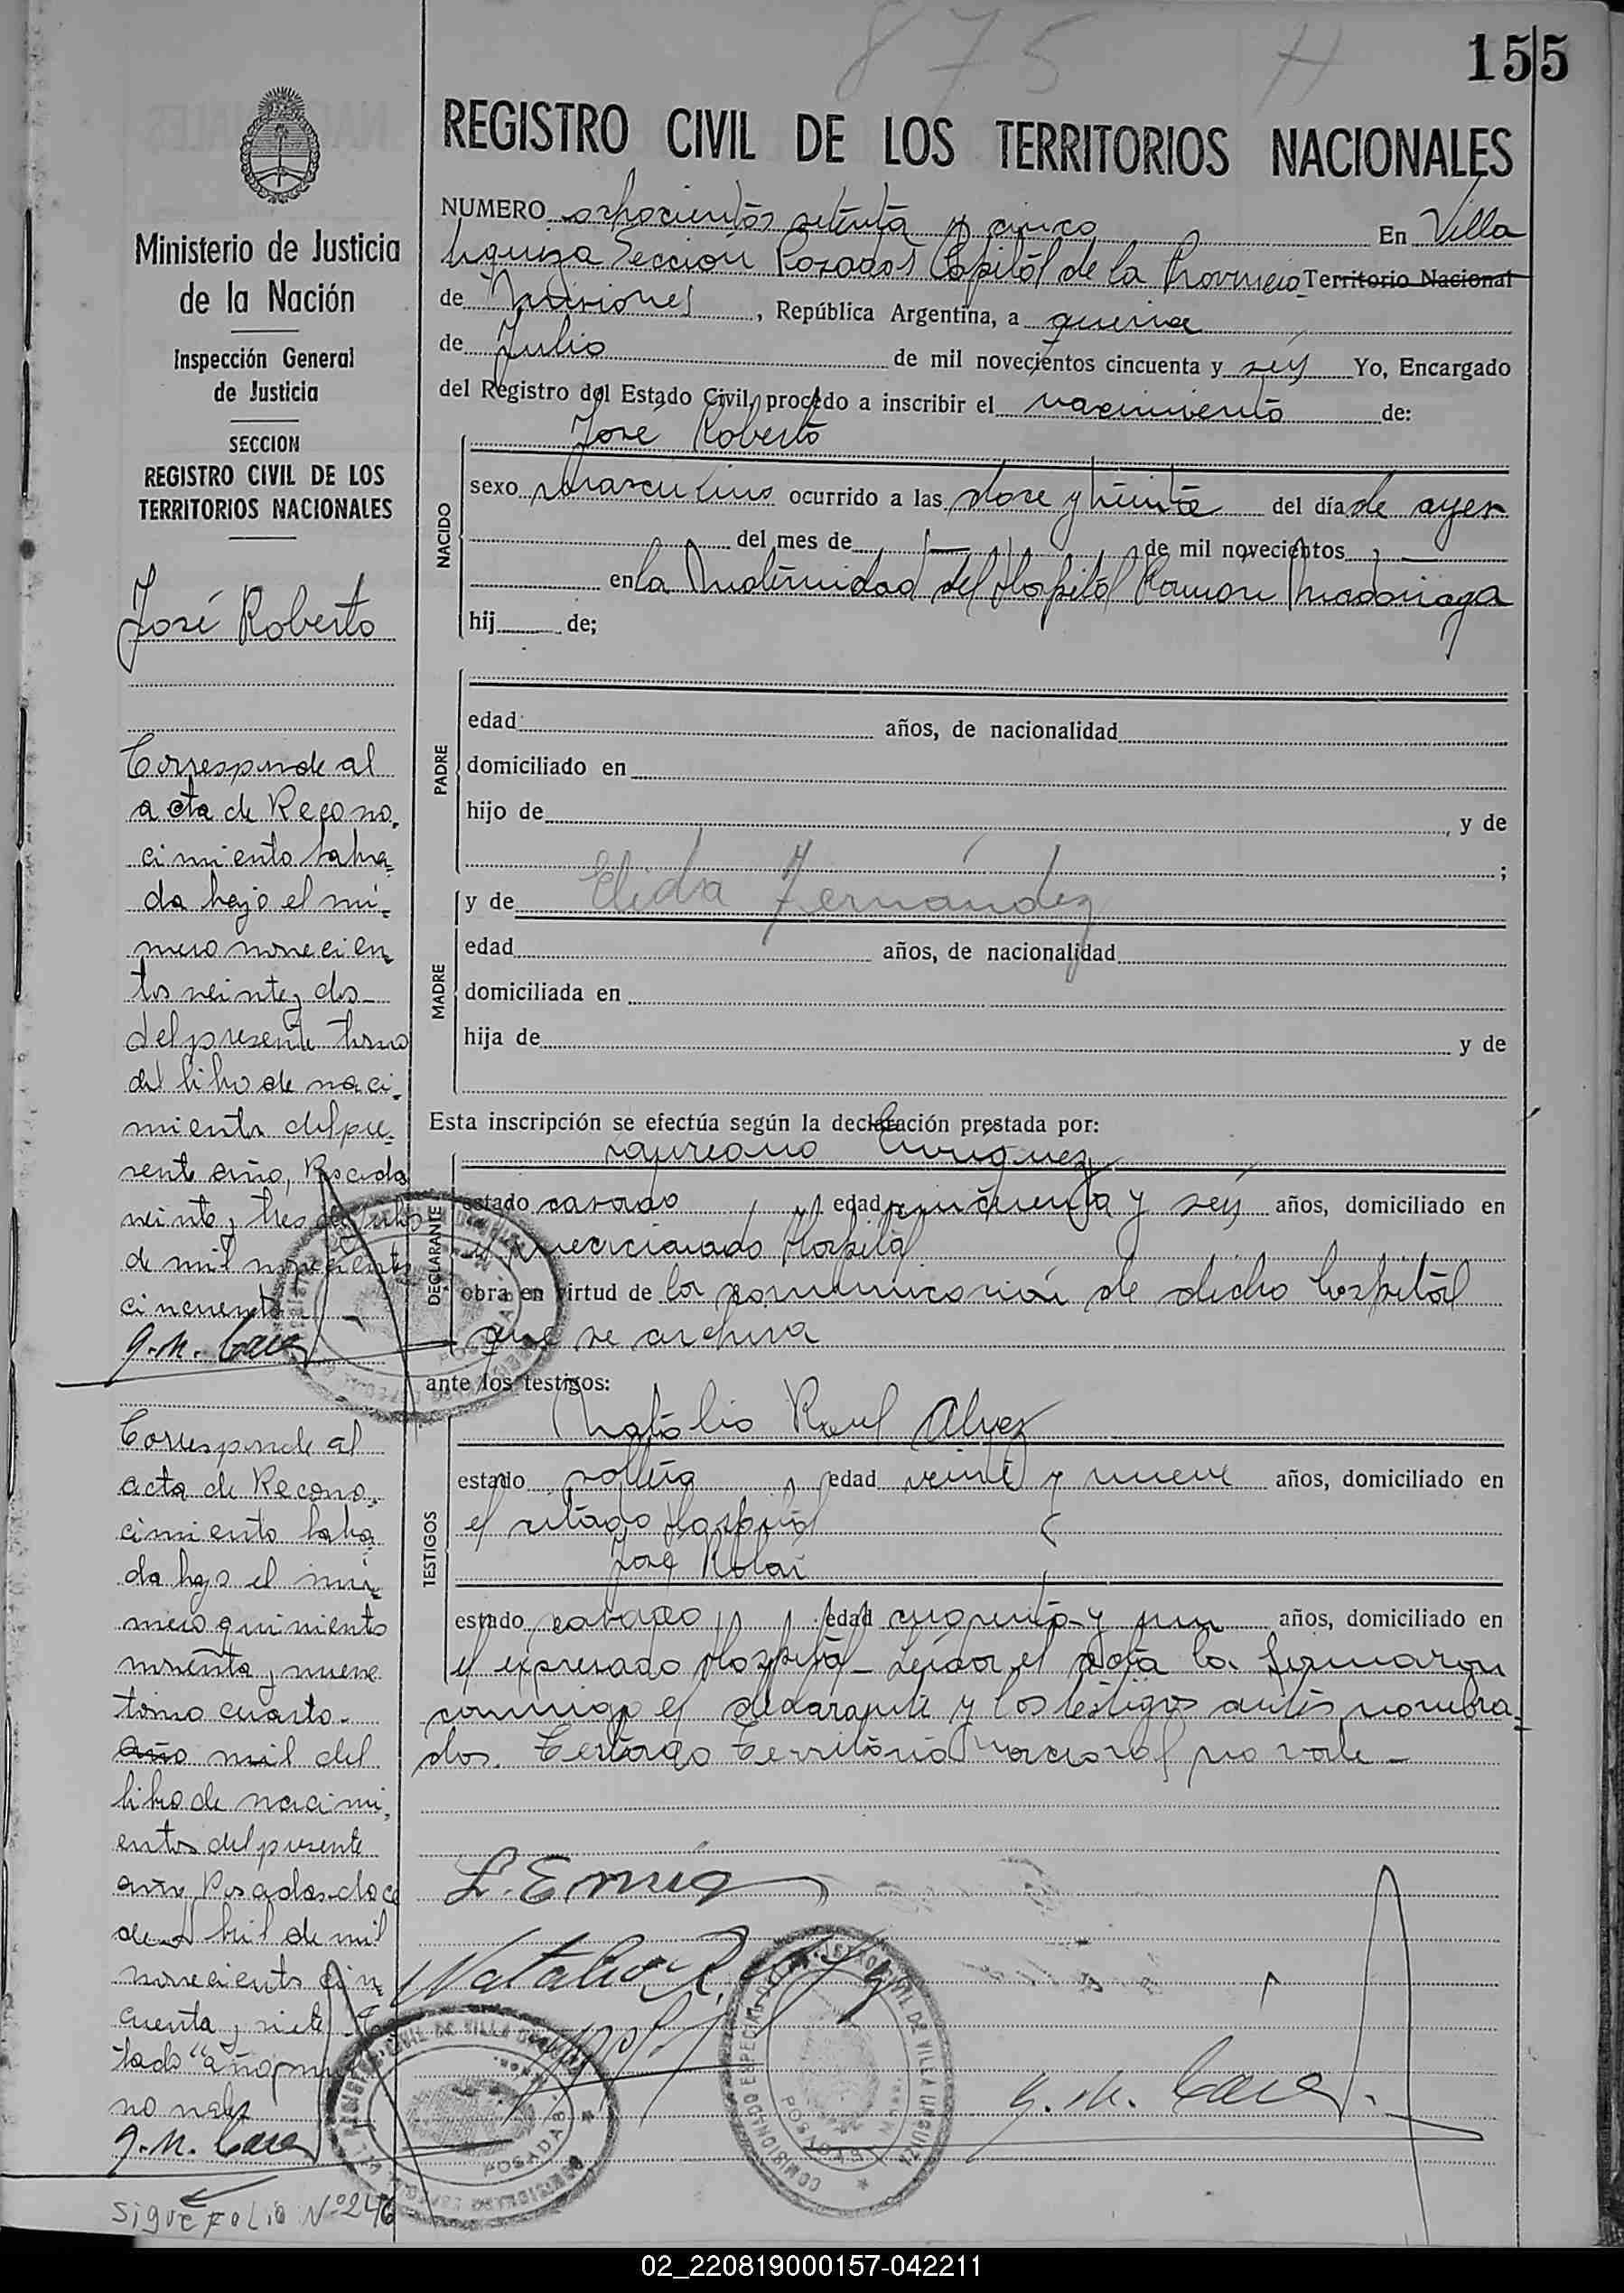 875 H
155
REGISTRO CIVIL DE LOS TERRITORIOS NACIONALES
NUMERO ochocientos setenta y cinco En Villa
Urquiza Sección Posadas Capital de la Provincia Territorio Nacional
de Misiones, República Argentina, a quince
de Julio de mil novecientos cincuenta y seis Yo, Encargado
del Registro del Estado Civil, procedo a inscribir el nacimiento de:
José Roberto
NACIDO
sexo Masculino ocurrido a las doce y treinta del día de ayer
del mes de de mil novecientos
en la Maternidad del Hospital Ramón Madariaga
hij de;
PADRE
edad años, de nacionalidad
domiciliado en
hijo de , y de
;
y de Elida Fernández
MADRE
edad años, de nacionalidad
domiciliada en
hija de y de
Esta inscripción se efectúa según la declaración prestada por:
Laureano Enriquez
DECLARANTE
estado casado, edad cincuenta y seis años, domiciliado en
el mencionado Hospital
obra en virtud de la comunicación de dicho hospital
que se archiva
ante los testigos:
Natalio Raul Alvez
TESTIGOS
estado soltero, edad veinte y nueve años, domiciliado en
el citado Hospital
José
estado casado, edad cincuenta y un años, domiciliado en
el expresado Hospital - Leida el acta la firmaron
conmigo el declarante y los testigos antes nombra-
dos. Testado Territorio Nacional no vale -
L. Enriq
Natalio R. Alvez
G. M.
Ministerio de Justicia
de la Nación
Inspección General
de Justicia
SECCION
REGISTRO CIVIL DE LOS
TERRITORIOS NACIONALES
José Roberto
Corresponde al
acta de Recono-
cimiento labra-
da bajo el nú-
mero novecien-
tos veinte y dos
del presente tomo
del libro de naci-
miento del pre-
sente año, Posadas
veinte y tres de Julio
de mil novecientos
cincuenta
G. M.
Corresponde al
acta de Recono-
cimiento labra-
da bajo el nú-
mero quinientos
noventa y nueve
tomo cuarto
año mil del
libro de nacimi-
entos del presente
año, Posadas doce
de Abril de mil
novecientos cin-
cuenta y siete Tes-
tado "año mil"
no vale
G. M.
SIGUE FOLIO Nº 246
POSADAS
POSADAS
POSADAS
02_220819000157-042211